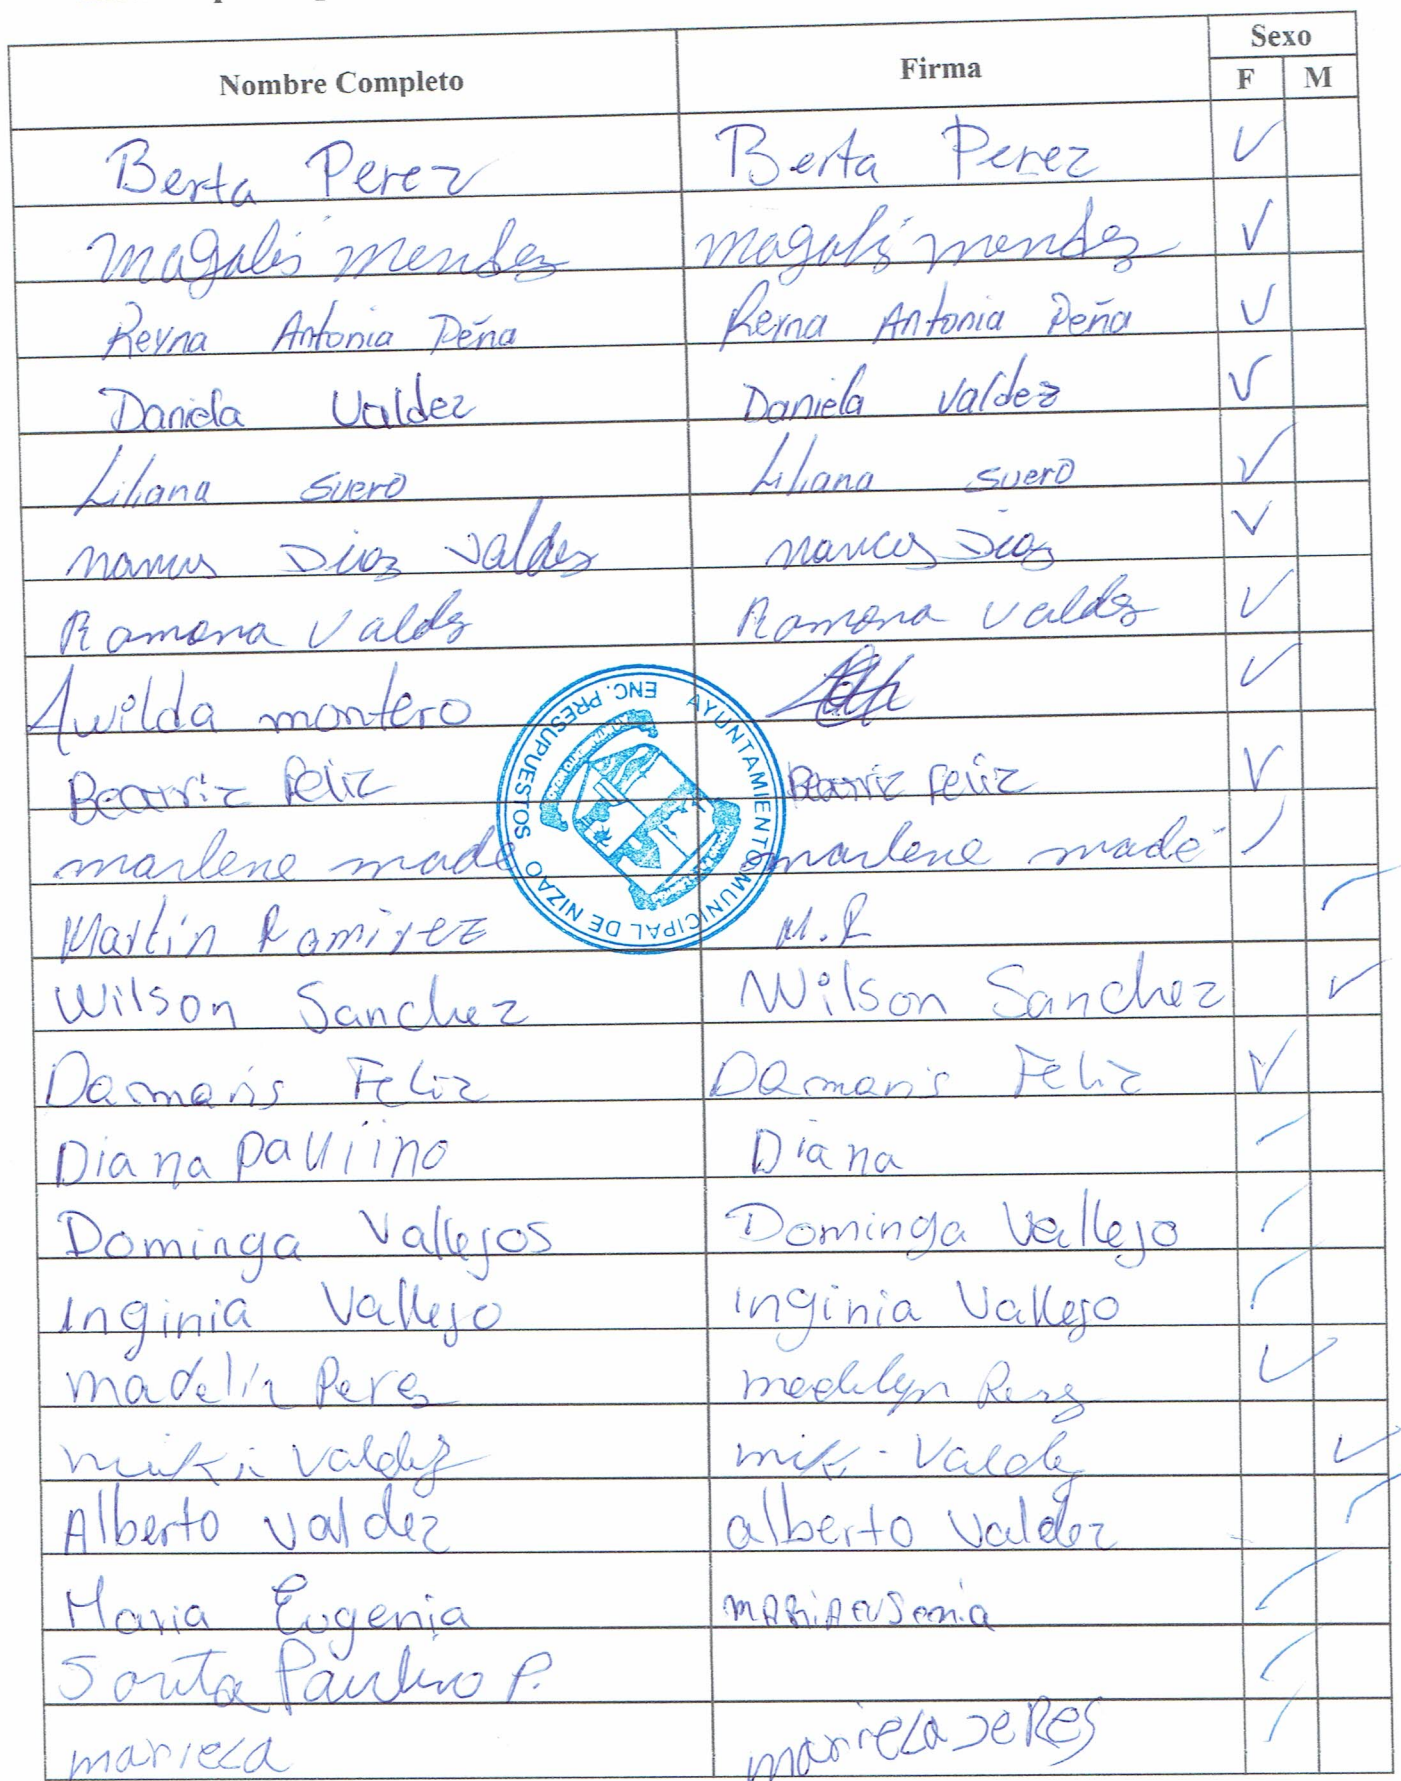 Sexo
Nombre Completo Firma F M
Berta Perez Berta Perez ✓
Magalis Mendez magalis mendez ✓
Reyna Antonia Peña Reyna Antonia Peña ✓
Daniela Valdez Daniela Valdez ✓
Liliana suero Liliana suero ✓
Diaz Valdez nancy Diaz ✓
Ramona Valdez Ramona Valdez ✓
Awilda montero ✓
Beatriz Feliz Beatriz Feliz ✓
marlene madé marlene madé
Martín Ramirez M.R
Wilson Sanchez Wilson Sanchez ✓
Damaris Feliz Damaris Feliz ✓
Diana Diana
Dominga Vallejos Dominga Vallejo
Inginia Vallejo inginia Vallejo
madelín Peres ✓
Valdez Valdez ✓
Alberto valdez alberto Valdez
Maria Eugenia
Paulino P.
mariela mariela
AYUNTAMIENTO MUNICIPAL DE NIZAO
ENC. PRESUPUESTOS